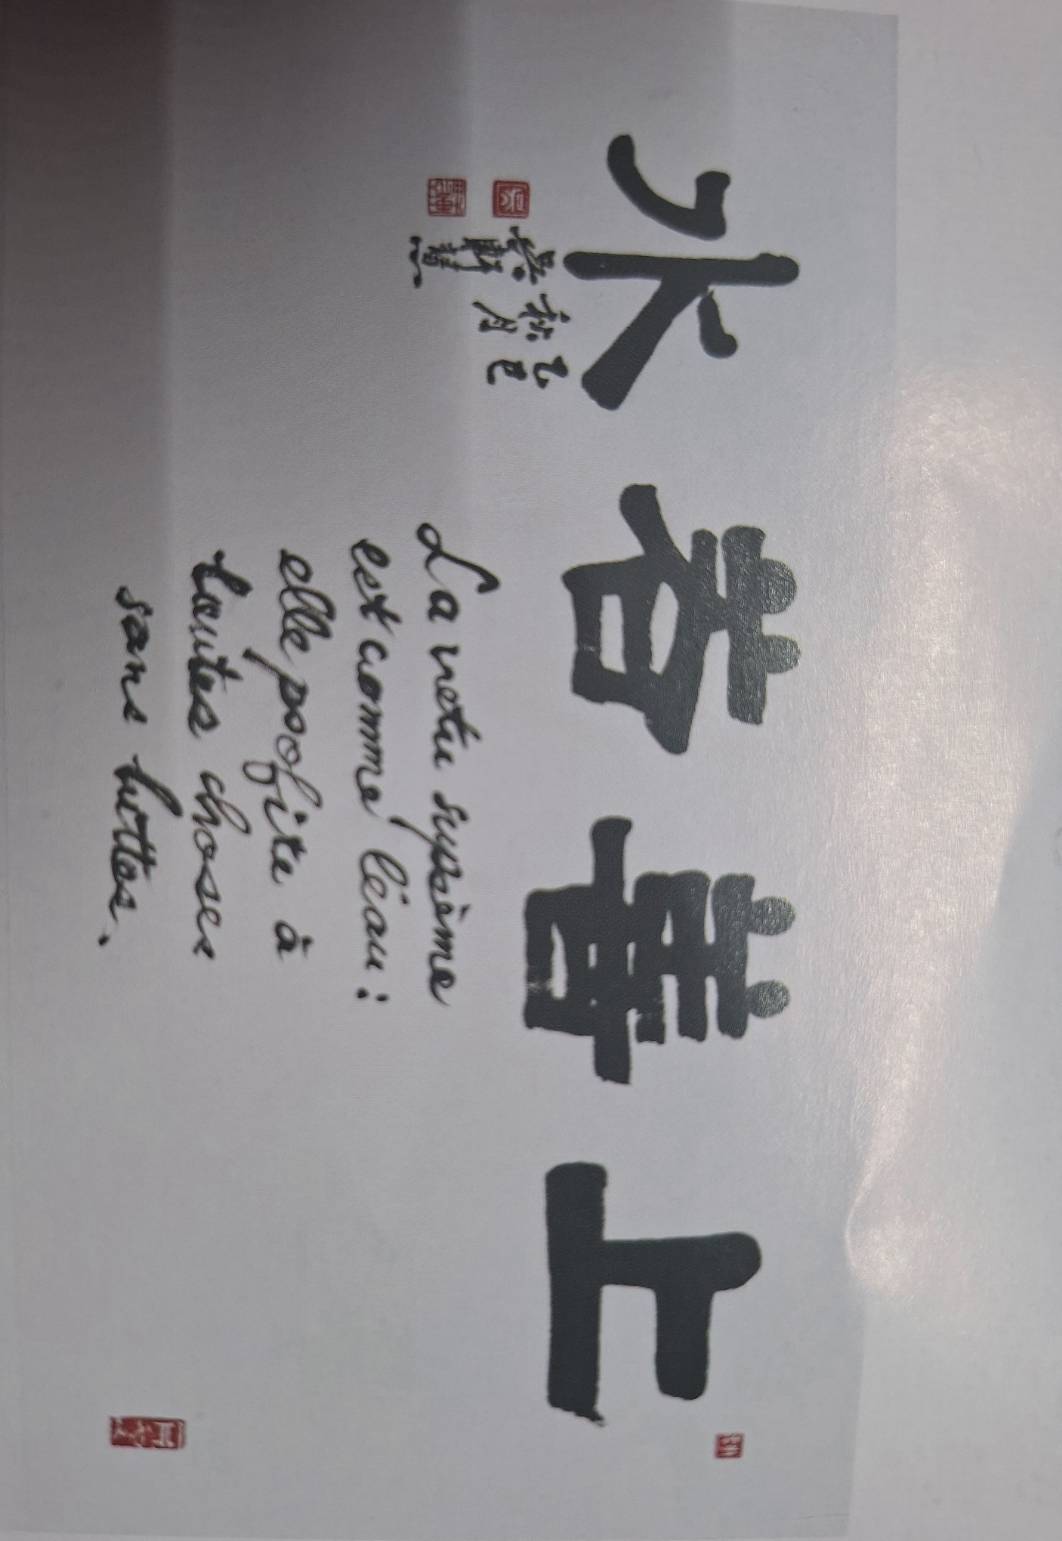 上善若水
乙巳
秋月
La vertu suprème
est comme l'éau :
elle pofite à
toutes choses
sans luttes.